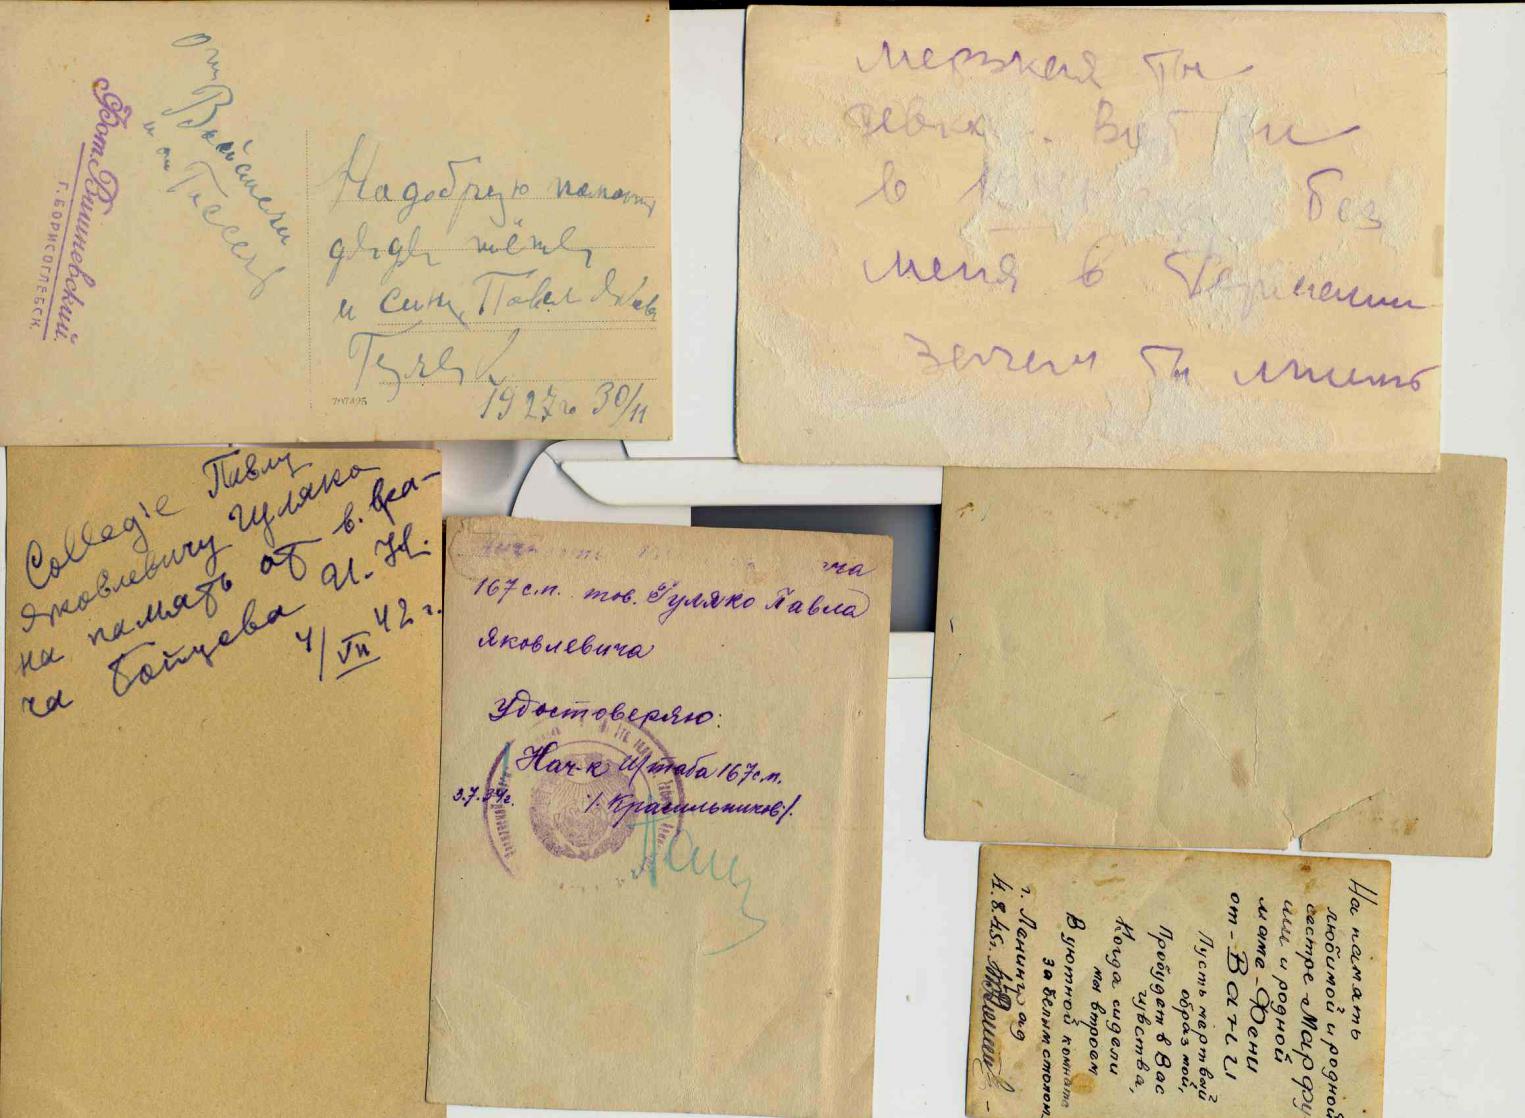 от
и от
Фот. Вишневский.
Г. БОРИСОГЛЕБСК.
На добрую память
дяди тёти
и сину Павел
1927 г. 30/11
мерзкая ты
девка. Вот ты
в без
меня в Германии
зачем ты
Collegie Павлу
Яковлевичу Гуляко
на память от в. вра-
ча Бойцева И. Н.
4/VII 42 г.
167 с.п. тов. Гуляко Павла
Яковлевича
Удостоверяю:
Нач-к Штаба 167 с.п.
3.7.34г. /Красильников/.
На память
любимой и родной
сестре Марфу
ши и родной
маме-Фени
от-Вани
Пусть мертвый
образ мой,
Пробудет в Вас
чувства,
Когда сидели
мы втроем
В уютной комнате
за белым столом.
г. Ленинград
4.8.45г.